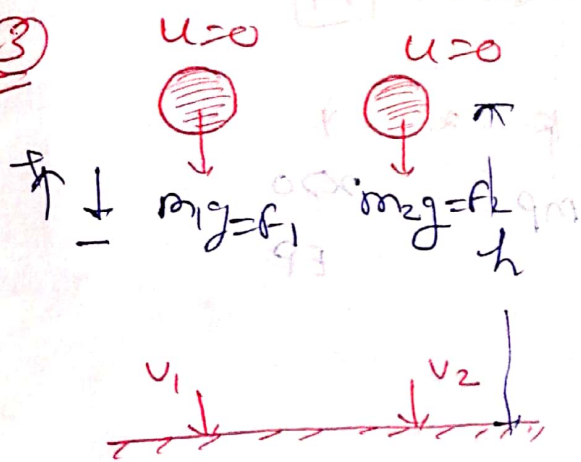 3
u=0
u=0
+ ↑ ↓ −
m₁g=F₁
m₂g=F₂
h
v₁
v₂